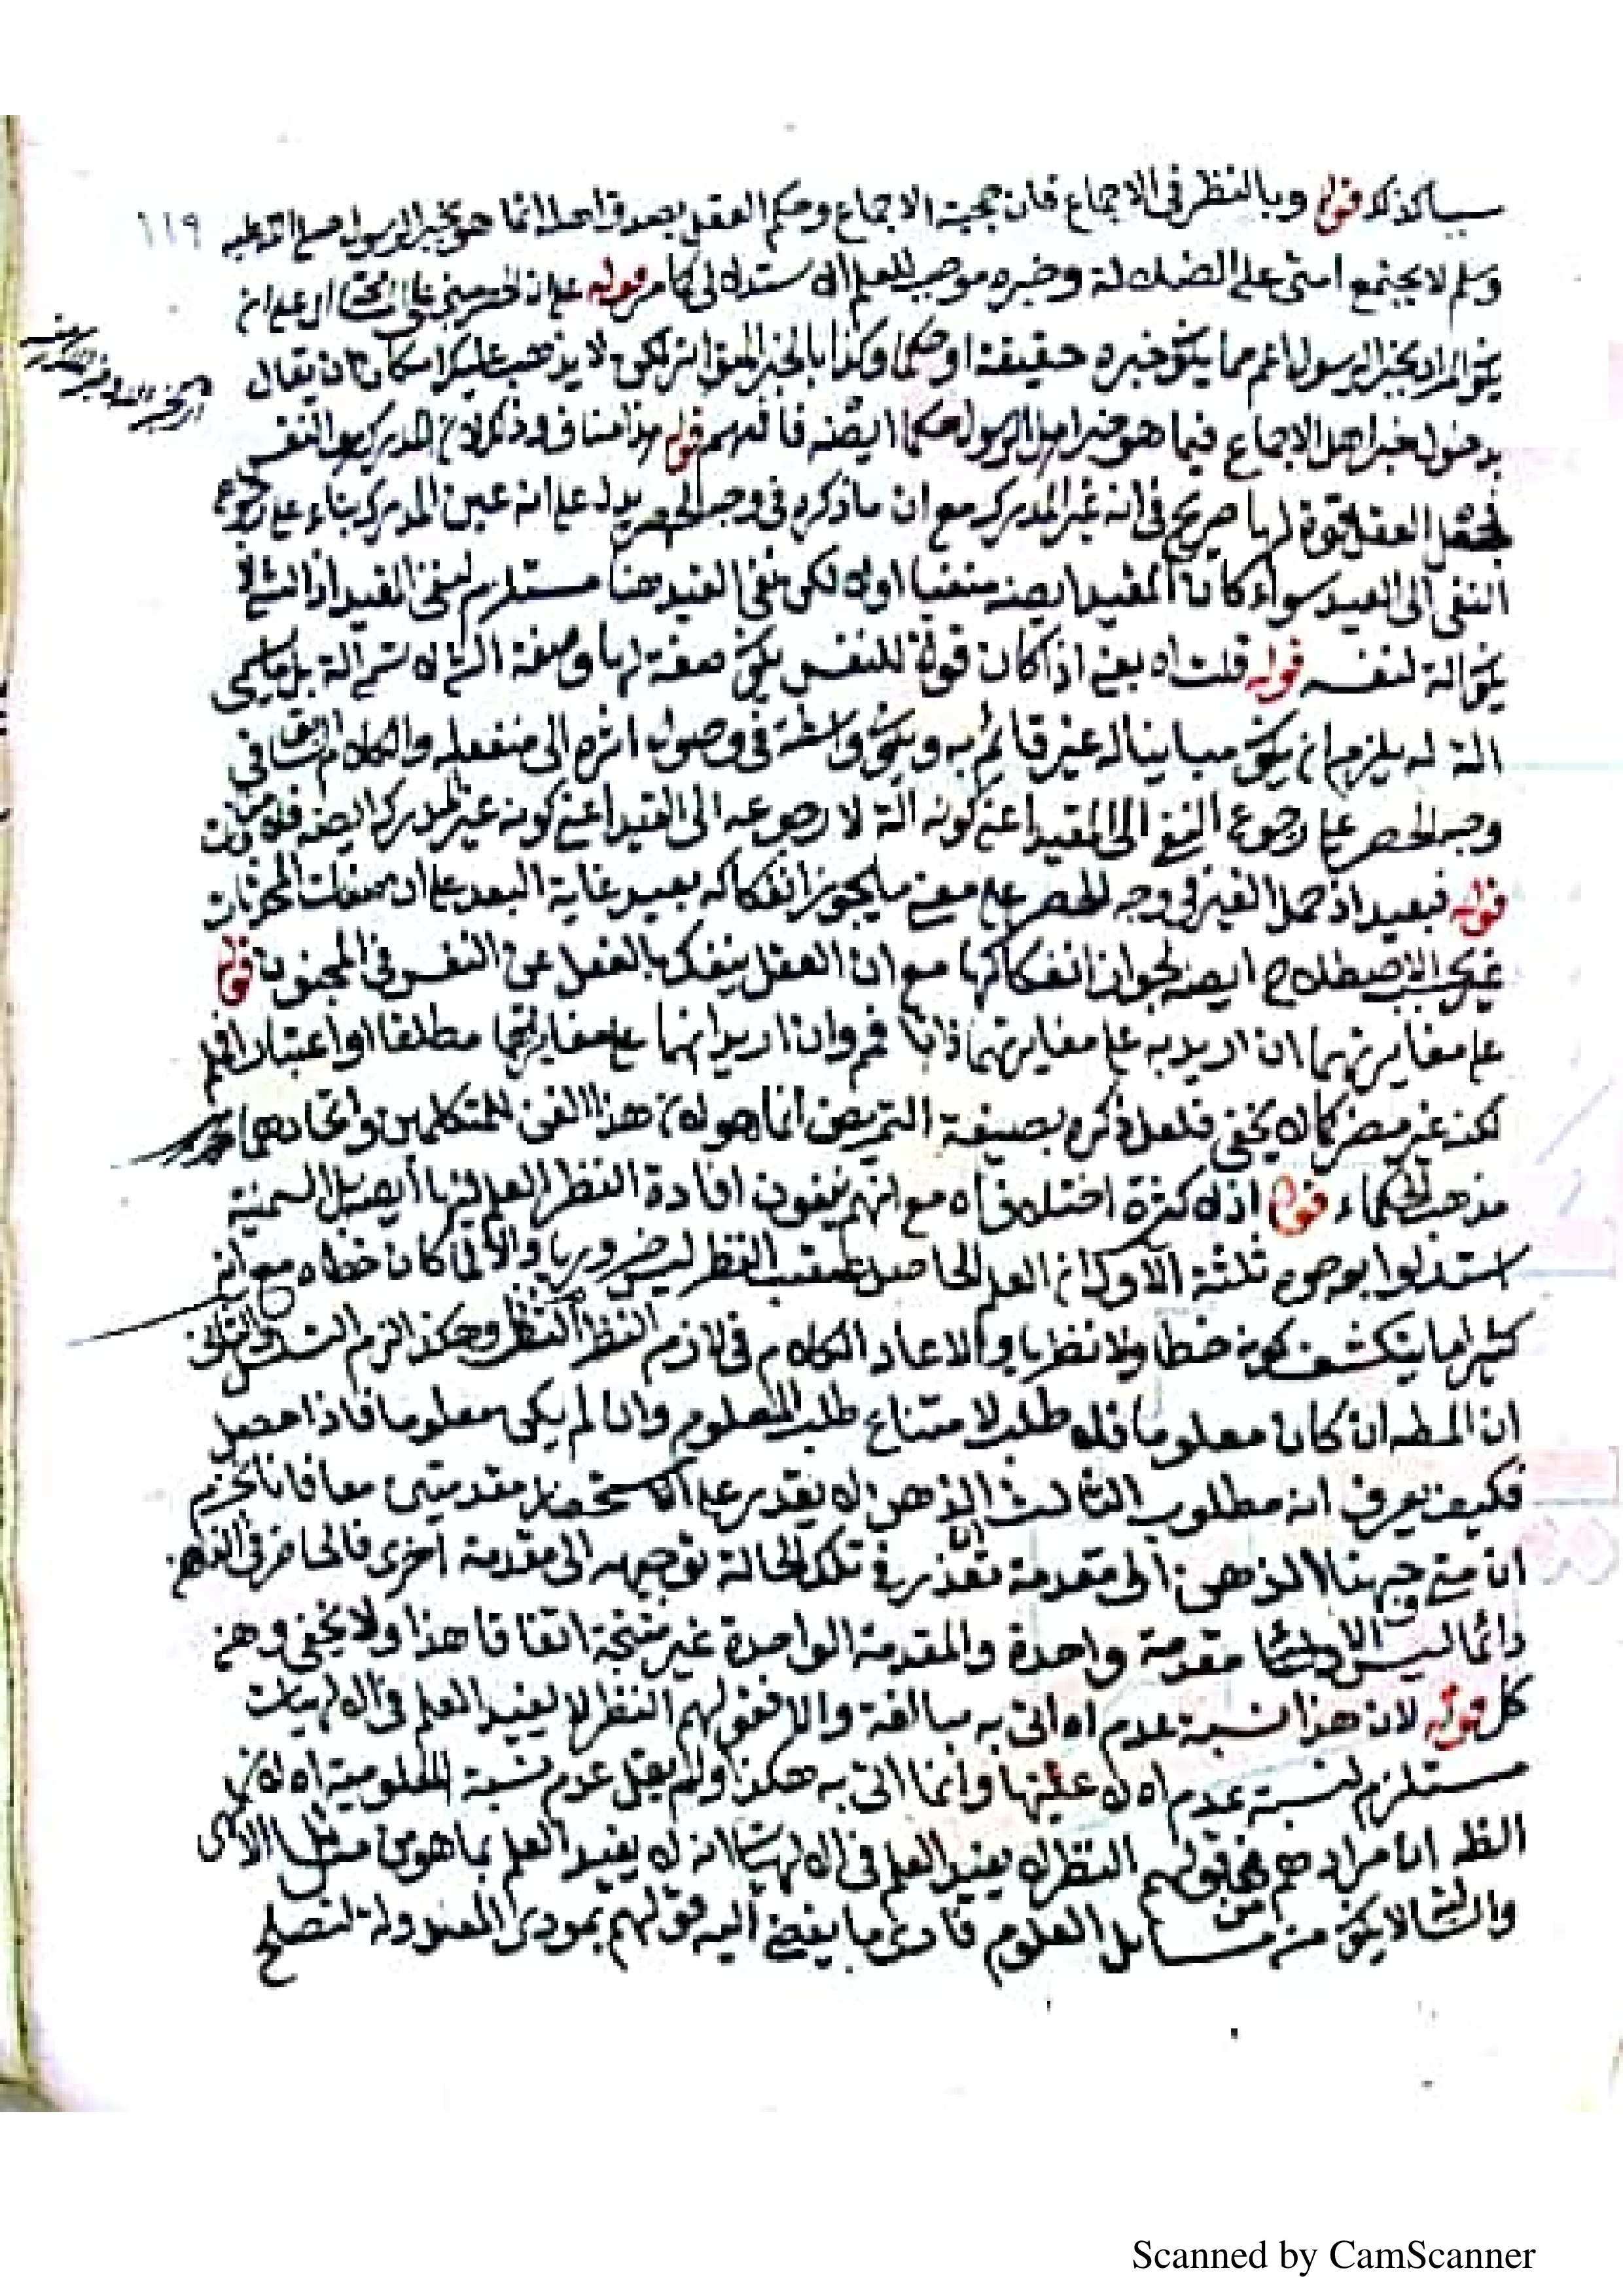 ١١٩
سيما كذلك قوله وبالنظر في الاجماع فان حجية الاجماع وحكم العقل بصدق اهله انما هو بخبر الرسول صلى الله عليه
وسلم لا يجتمع امتى على الضلالة وخبره موجب للعلم الاستدلالى كما مر قوله على ان الحصر مبنى على
المراد بخبر الرسول اعم مما يكون خبره حقيقة او حكما وكذا بالخبر المتواتر لكن لا يذهب عليك امكان ان يقال
بدخول خبر اهل الاجماع فيما هو خبر الرسول حكما ايضه فافهم قوله هذا مناف وذكر لان المدرك هو النفس
فجعل العقل قوة لها صريح فى انه غير المدرك مع ان ما ذكره فى وجه الحصر يدل على انه عين المدرك بناء على رجوع
النفى الى القيد سواء كان المقيد ايضه منفيا اولا لكن نفى القيد هنا مستلزم لنفى المقيد اذ الشئ لا
يكون آلة لنفسه قوله قلت اه يعنى اذا كان قوة للنفس يكون صفة لها وصفة الشئ لا تسمى آلة بل ما يسمى
آلة له يلزم ان يكون مباينا له غير قائم به ويكون واسطة فى وصول اثره الى منفعله والكلام السابق فى
وجه الحصر على رجوع النفى الى المقيد اعنى كونه آلة لا رجوعه الى القيد اعنى كونه غير المدرك ايضه فلا
قوله فبعيد اذ حمل الغير فى وجه الحصر على معنى ما يجوز انفكاكه بعيد غاية البعد على ان صفات
غير بحسب الاصطلاح ايضه لجواز انفكاكها مع ان العقل ينفك بالفعل عن النفس فى المجنون قوله
على مغايرتهما ان اريد به على مغايرتهما ذاتا فم وان اريد انهما على مغايرتهما مطلقا او اعتبارا فمسلم
لكنه غير مضر كما لا يخفى فلعل ذكره بصيغة التمريض انما هو لان هذا الفن للمتكلمين واتحادهما
مذهب الحكماء قوله اذ لا كثرة اختلاف اه مع انهم ينفون افادة النظر العلم فيها ايضه بل السمنية
استدلوا بوجوه ثلثة الاول ان العلم الحاصل عقيب النظر ليس ضروريا والا لما كان خطاء مع انه
كثيرا ما ينكشف كونه خطا ولا نظريا والا عاد الكلام فى لازم النظر وهكذا لزم التسلسل والثانى
ان المطه ان كان معلوما فلا طلب لامتناع طلب المعلوم وان لم يكن معلوما فاذا حصل
فكيف يعرف انه مطلوب الثالث الذهن لا يقدر على استحضار مقدمتين معا فانا نجزم
ان متى وجهنا الذهن الى مقدمة تعذر فى تلك الحالة توجيهه الى مقدمة اخرى فالحاضر فى الذهن
دائما ليس الا مقدمة واحدة والمقدمة الواحدة غير منتجة اتفاقا هذا ولا يخفى وهن
كل قوله لان هذا نسبة عدم اه اتى به مبالغة والا فقولهم النظر لا يفيد العلم فى الالهيات
مستلزم لنسبة عدم اه لا عينها وانما اتى به هكذا ولم يقل عدم نسبة المعلومية اه لان
الظ ان مرادهم فى قولهم النظر لا يفيد العلم فى الالهيات انه لا يفيد العلم بما هو من
لا يكون من مسايل العلوم فادى ما يفضى اليه قولهم بمودى المعدولة لتصلح
Scanned by CamScanner